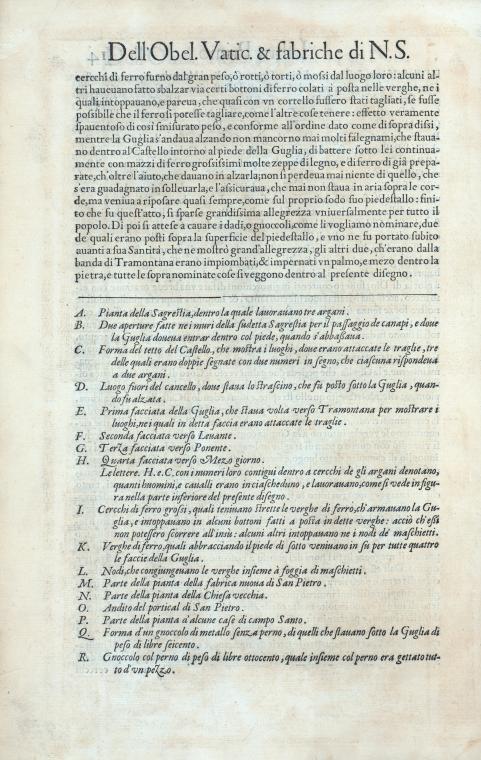 Dell'Obel. Vatic. & fabriche di N.S.
cerchi di ferro furno dal gran peso, ò rotti, ò torti, ò mossi dal luogo loro: alcuni al-
tri haueuano fatto sbalzar via certi bottoni di ferro colati à posta nelle verghe, ne i
quali intoppauano, e pareua, che quasi con vn cortello fussero stati tagliati, se fusse
possibile che il ferro si potesse tagliare, come l'altre cose tenere: effetto veramente
spauentoso di così smisurato peso, e conforme all'ordine dato come di sopra dissi,
mentre la Guglia s'andaua alzando non mancorno mai molti falegnami, che staua-
no dentro al Castello intorno al piede della Guglia, di battere sotto lei continua-
mente con mazzi di ferro grossissimi molte zeppe di legno, e di ferro di già prepa-
rate, ch'oltre l'aiuto, che dauano in alzarla; non si perdeua mai niente di quello, che
s'era guadagnato in solleuarla, e l'assicuraua, che mai non staua in aria sopra le cor-
de, ma veniua a riposare quasi sempre, come sul proprio sodo suo piedestallo: fini-
to che fu quest'atto, si sparse grandissima allegrezza vniuersalmente per tutto il
popolo. Di poi si attese à cauare i dadi, o gnoccoli, come li vogliamo nominare, due
de quali erano posti sopra la superficie del piedestallo, e vno ne fu portato subito
auanti a sua Santità, che ne mostrò grand'allegrezza, gli altri due, ch'erano dalla
banda di Tramontana erano impiombati, & impernati vn palmo, e mezo dentro la
pietra, e tutte le sopranominate cose si veggono dentro al presente disegno.
A. Pianta della Sagrestia, dentro la quale lauorauano tre argani.
B. Due aperture fatte nei muri della sudetta Sagrestia per il passaggio de canapi, e doue
la Guglia doueua entrar dentro col piede, quando s'abbassaua.
C. Forma del tetto del Castello, che mostra i luoghi, doue erano attaccate le traglie, tre
delle quali erano doppie segnate con due numeri in segno, che ciascuna rispondeua
a due argani.
D. Luogo fuori del cancello, doue staua lo strascino, che fù posto sotto la Guglia, quan-
do fu alzata.
E. Prima facciata della Guglia, che staua volta verso Tramontana per mostrare i
luoghi, nei quali in detta faccia erano attaccate le traglie.
F. Seconda facciata verso Leuante.
G. Terza facciata verso Ponente.
H. Quarta facciata verso Mezo giorno.
Le lettere. H. e C. con i numeri loro contigui dentro a cercchi de gli argani denotano,
quanti huomini, e caualli erano in ciascheduno, e lauorauano, come si vede in figu-
ra nella parte inferiore del presente disegno.
I. Cercchi di ferro grossi, quali teniuano strette le verghe di ferro, ch'armauano la Gu-
glia, e intoppauano in alcuni bottoni fatti a posta in dette verghe: acciò ch'essi
non potessero scorrere all'insù: alcuni altri intoppauano ne i nodi de' maschietti.
K. Verghe di ferro, quali abbracciando il piede di sotto veniuano in sù per tutte quattro
le faccie della Guglia.
L. Nodi, che congiungeuano le verghe insieme à foggia di maschietti.
M. Parte della pianta della fabrica nuoua di San Pietro.
N. Parte della pianta della Chiesa vecchia.
O. Andito del portical di San Pietro.
P. Parte della pianta d'alcune case di campo Santo.
Q. Forma d'un gnoccolo di metallo senza perno, di quelli che stauano sotto la Guglia di
peso di libre seicento.
R. Gnoccolo col perno di peso di libre ottocento, quale insieme col perno era gettato tut-
to d'vn pezzo.